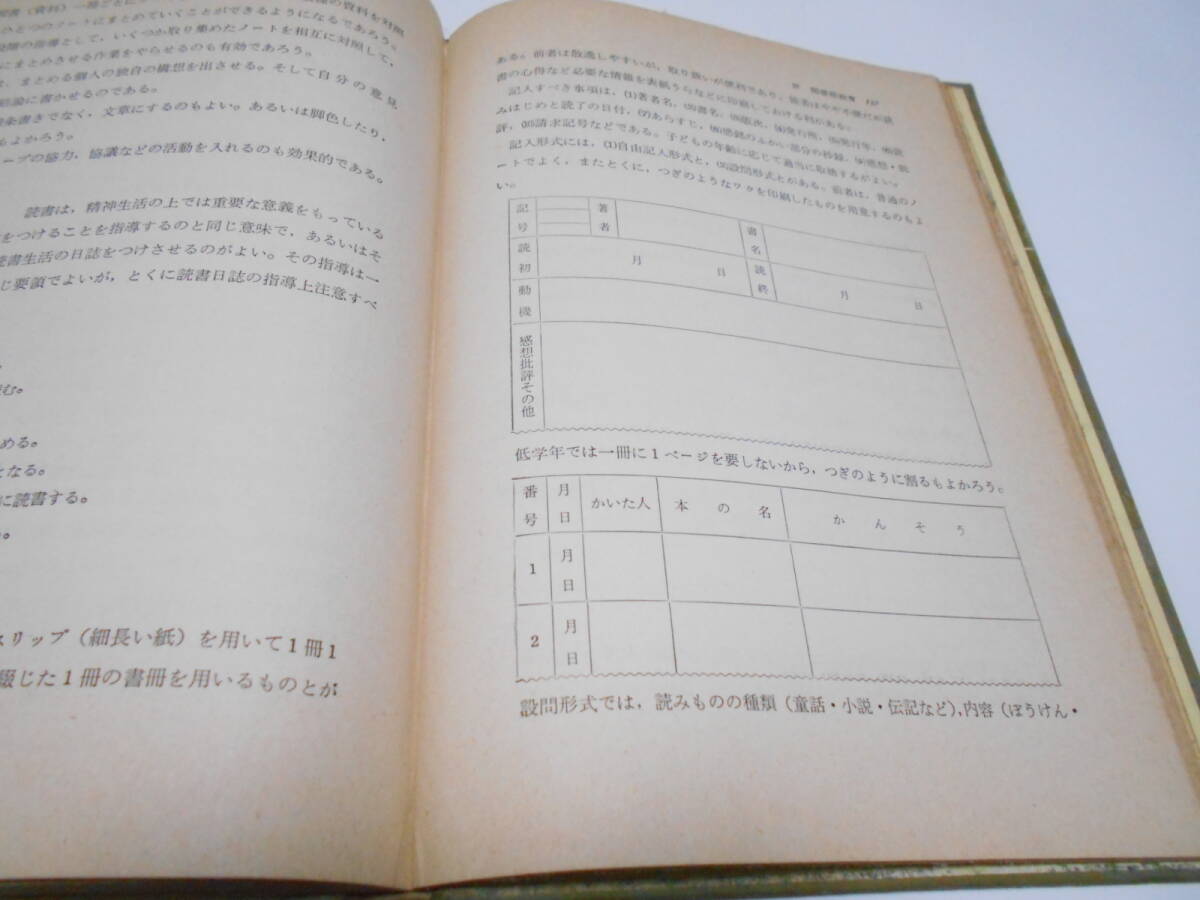 ひとつのノートにまとめていくことができるようになるであろう。
階の指導として，いくつか取り集めたノートを相互に対照して，
にまとめさせる作業をやらせるのも有効であろう。
まとめる個人の独自の構想を出させる。そして自分の意見
結論に書かせるのである。
条書きでなく，文章にするのもよい。あるいは脚色したり，
もよかろう。
ープの協力，協議などの活動を入れるのも効果的である。
読書は，精神生活の上では重要な意義をもっている
をつけることを指導するのと同じ意味で，あるいはそ
読書生活の日誌をつけさせるのがよい。その指導は一
じ要領でよいが，とくに読書日誌の指導上注意すべ
む。
める。
となる。
に読書する。
スリップ（細長い紙）を用いて1冊1
綴じた1冊の書冊を用いるものとが
ある。前者は散逸しやすいが，取り扱いが便利であり，
書の心得など必要な情報を表紙うらなどに印刷しておける利がある。
記入すべき事項は，⑴著者名，⑵書名，⑶版次，⑷発行所，⑸発行年，⑹読
みはじめと読了の日付，⑺あらすじ，⑻感銘のふかい部分の抄録，⑼感想・批
評，⑽請求記号などである。子どもの年齢に応じて適当に取捨するがよい。
記入形式には，⑴自由記入形式と，⑵設問形式とがある。前者は，普通のノ
ートでよく，またとくに，つぎのようなワクを印刷したものを用意するのもよ
い。
記号 著者 書名
読初 月 日 読終 月 日
動機
感想批評その他
低学年では一冊に1ページを要しないから，つぎのように割るもよかろう。
番号 月日 かいた人 本の名 かんそう
1 月日
2 月日
設問形式では，読みものの種類（童話・小説・伝記など），内容（ぼうけん・